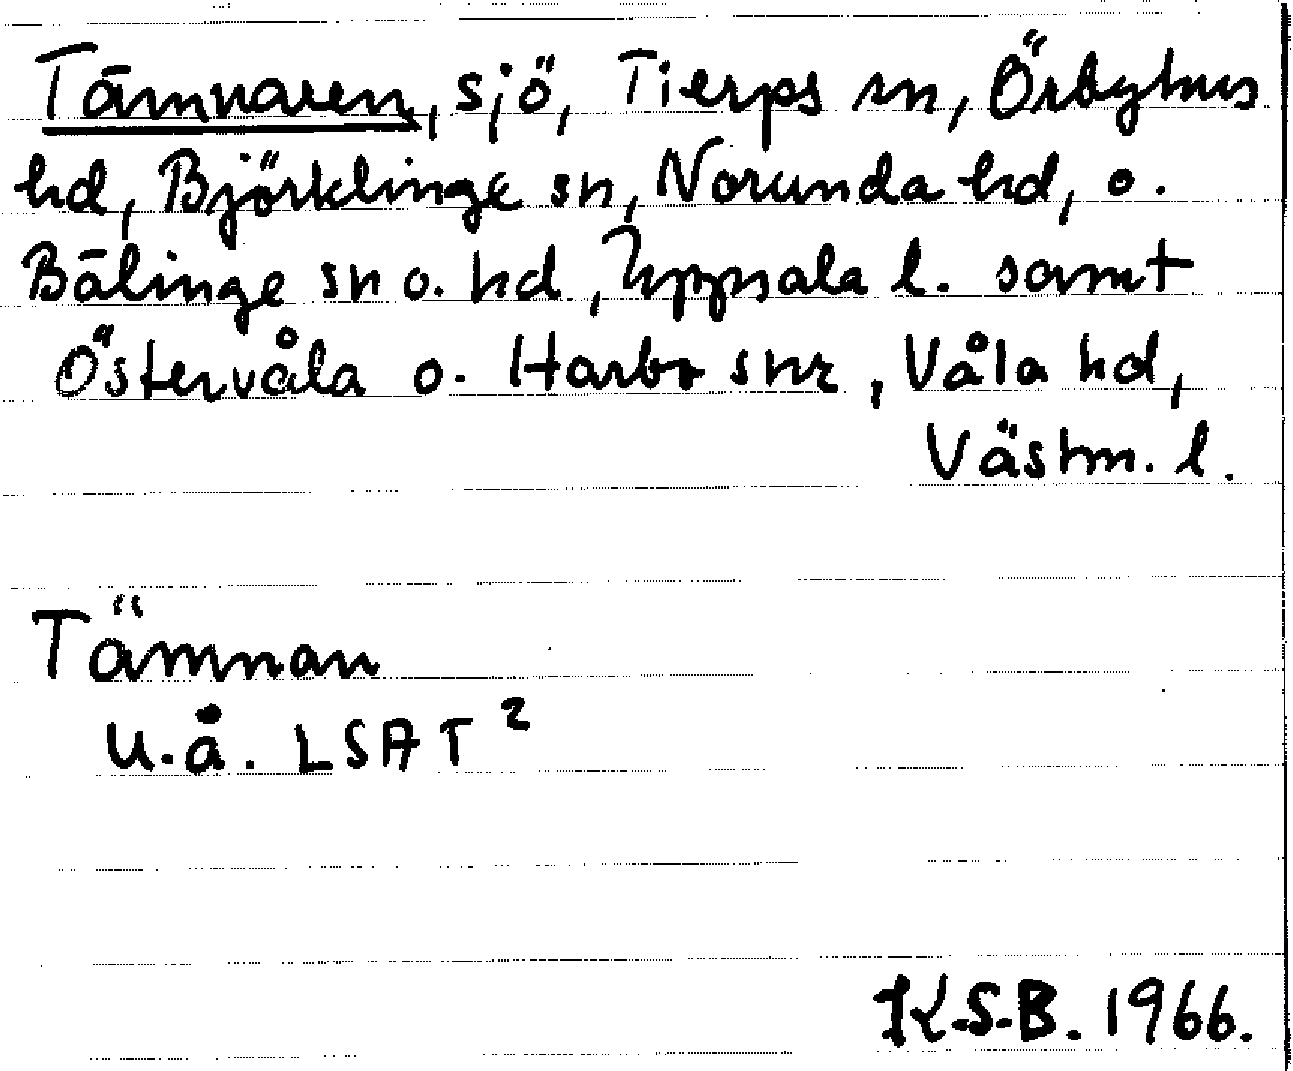 Tämnaren, sjö, Tierps sn, Örbyhus
hd, Björklinge sn, Norunda hd, o.
Bälinge sn o. hd, Uppsala l. samt
Östervåla o. Harbo snr, Våla hd,
Västm. l.
Tämnan
u.å. LSAT²
K.S.B. 1966.